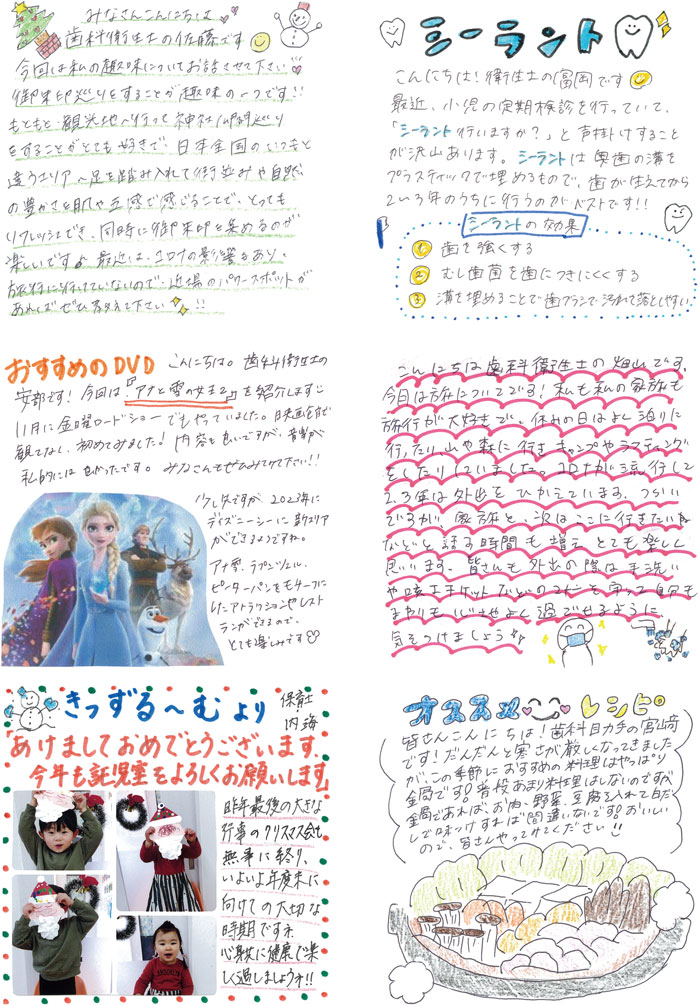 みなさんこんにちは
歯科衛生士の佐藤です
今回は私の趣味についてお話させて下さい
御朱印巡りをすることが趣味の一つです!!
もともと観光地へ行って神社仏閣巡り
をすることがとても好きで、日本全国のいつもと
違うエリアへ足を踏み入れて街並みや自然
の豊かさを肌や五感で感じることで、とっても
リフレッシュでき、同時に御朱印を集めるのが
楽しいです♪最近は、コロナの影響もあり、
旅行に行けていないので、近場のパワースポットが
あればぜひ教えて下さい!!
シーラント
こんにちは!衛生士の富岡です
最近、小児の定期検診を行っていて、
「シーラント行いますか?」と声掛けすること
が沢山あります。シーラントは奥歯の溝を
プラスティックで埋めるもので、歯が生えてから
2~3年のうちに行うのがベストです!!
シーラントの効果
① 歯を強くする
② むし歯菌を歯につきにくくする
③ 溝を埋めることで歯ブラシで汚れを落としやすい
おすすめのDVD こんにちは。歯科衛生士の
安部です!今回は『アナと雪の女王2』を紹介します
11月に金曜ロードショーでもやっていました。映画館で
観てなく、初めてみました!内容も良いですが、音楽が
私的には良かったです。みなさんもぜひみてみて下さい!!
少し先ですが2023年に
ディズニーシーに新エリア
ができるようですね。
アナ雪、ラプンツェル、
ピーターパンをモチーフに
したアトラクションやレスト
ランができるので、
とても楽しみです♡
こんにちは歯科衛生士の畑山です。
今日は旅についてです!私も私の家族も
旅行が大好きで、休みの日はよく泊りに
行ったり、山や森に行きキャンプやラフティング
をしたりしていました。コロナが流行して
2.3年は外出をひかえています。つらい
ですが、家族と、次はここに行きたいね
などと話す時間も増えとても楽しく
思います。皆さんも外出の際は手洗い
や咳エチケットなどのマナーを守って自分も
まわりも過ごせるように
気をつけましょう
きっずる〜むより
保育士
内海
「あけましておめでとうございます。
今年も託児室をよろしくお願いします」
昨年最後の大きな
行事のクリスマス会も
無事に終り、
いよいよ年度末に
向けての大切な
時期ですネ
心身共に健康で楽
しく過しましょうネ!!
オススメ レシピ
皆さんこんにちは!歯科助手の宮崎
です!だんだんと寒さが厳しくなってきました
が、この季節におすすめの料理はやっぱり
鍋です!普段あまり料理はしないのですが
鍋であれば、お肉、野菜、豆腐を入れて白だ
しで味つけすれば間違いないです!おいしい
ので、皆さんやってみてください!!